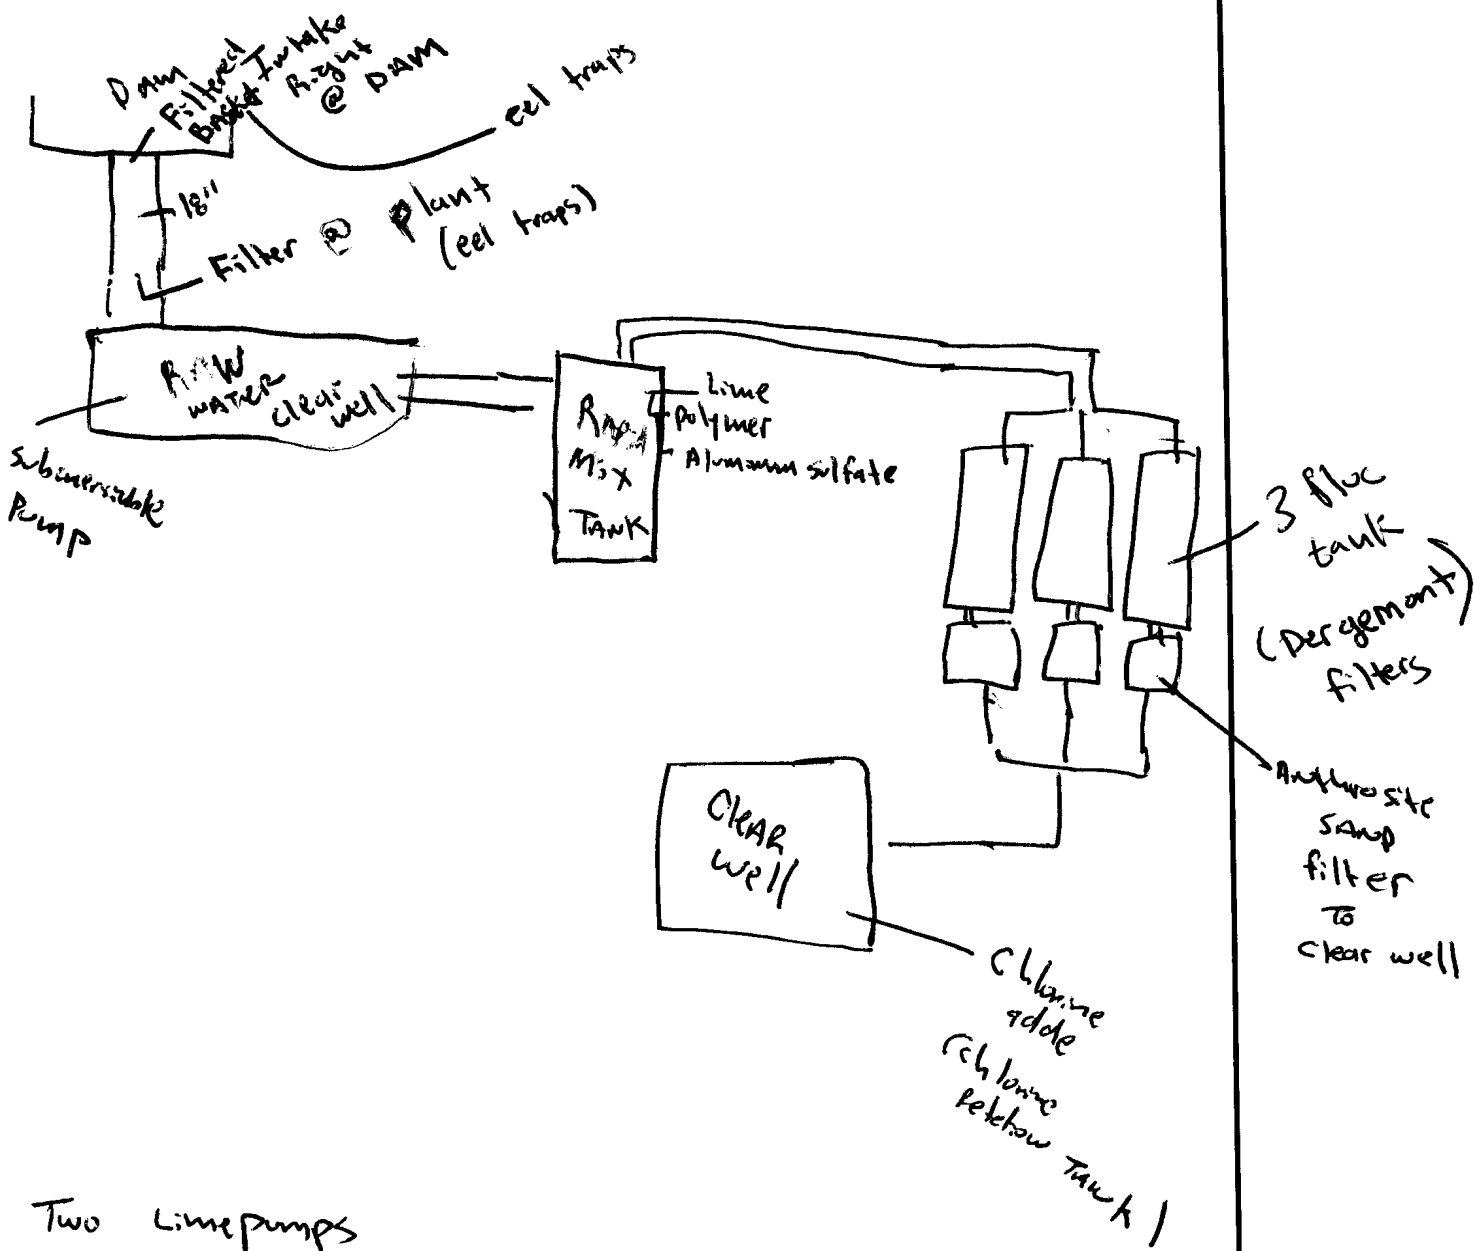 DAM
Filtered
Basket Intake
Right
@ DAM
eel traps
18"
Filter @ plant
(eel traps)
RAW
WATER
clear
well
Submersible
Pump
Rapid
Mix
TANK
Lime
polymer
Aluminum sulfate
3 floc
tank
(Dergemont)
filters
Anthrosite
SAND
filter
To
Clear well
CleAR
well
Chlorine
adde
(Chlorine
Tank)
Two Lime pumps